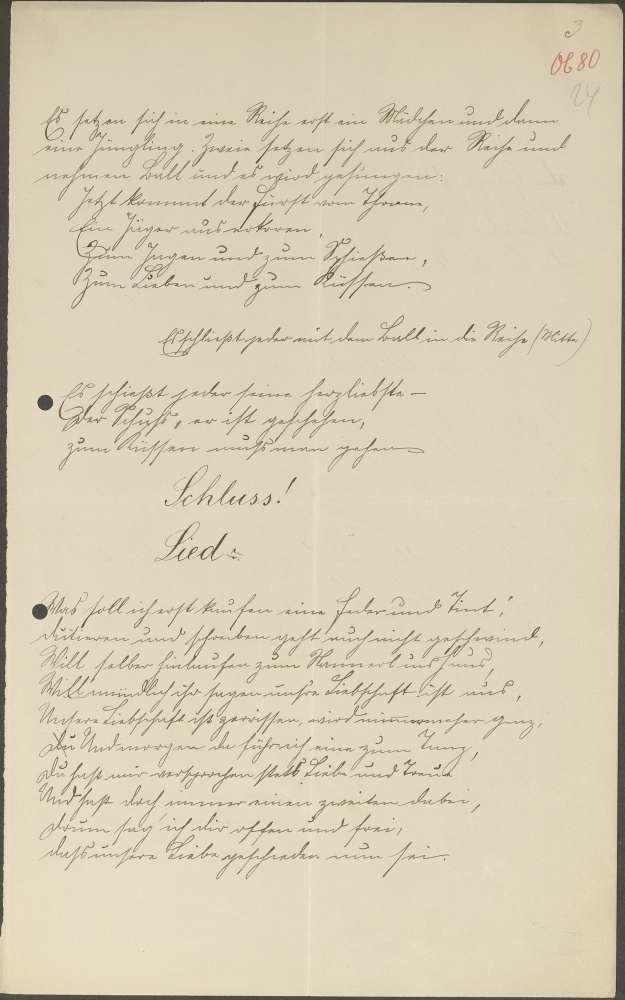 3
Ob80
24
Es setzen sich in eine Reihe erst ein Mädchen und dann
eine Jüngling. Zweie setzen sich aus der Reihe und
nehmen Ball und es wird gesungen:
Jetzt kommt der Fürst vom Throne,
Ein Jäger auserkoren,
Zum Jagen und zum Schießen,
Zum Lieben und zum Küssen.
Es schließt jeder mit dem Ball in die Reihe (Mitte)
Es schießt jeder seine herzliebste –
Der Schuss, er ist geschehen,
zum Küssen muss man gehen
Schluss!
Lied
Was soll ich erst kaufen eine Feder und Tint',
und schreiben geht auch nicht geschwind,
Will selber hinlaufen zum ins Haus,
Will mündlich ihr sagen unsre Liebschaft ist aus,
Unsere Liebschaft ist zerrissen, wird nimmermeher ganz,
Und morgen da führ ich eine zum Tanz,
Du hast mir versprochen stets Liebe und Treue
Und hast doch immer einen zweiten dabei,
Drum sag' ich dir offen und frei,
dass unsere Liebe geschieden nun sei.